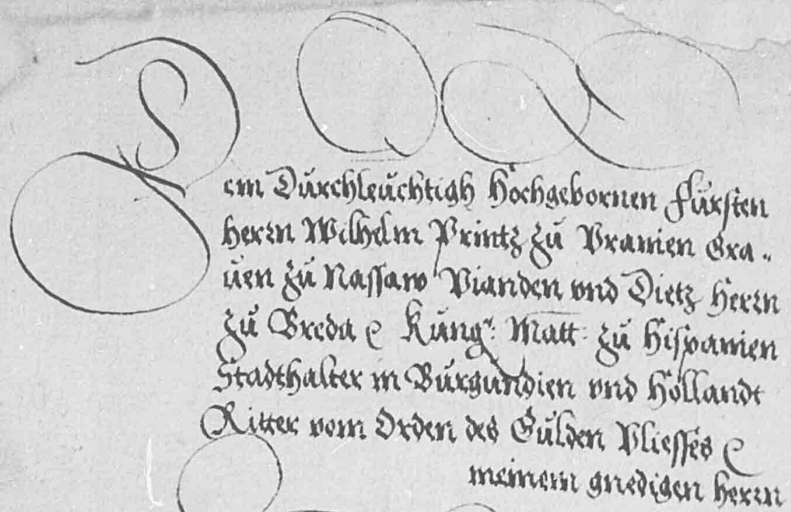 Dem Durchleuchtigh Hochgebornen Fursten
herrn Wilhelm Printz zu Vranien Gra„
uen zu Nassaw Vianden vnd Dietz Herrn
zu Breda ⁊c Kungr: Matt: zu Hispanien
Stadthalter in Burgundien vnd Hollandt
Ritter vom Orden des Gulden Vliesses ⁊c
meinem gnedigen herrn